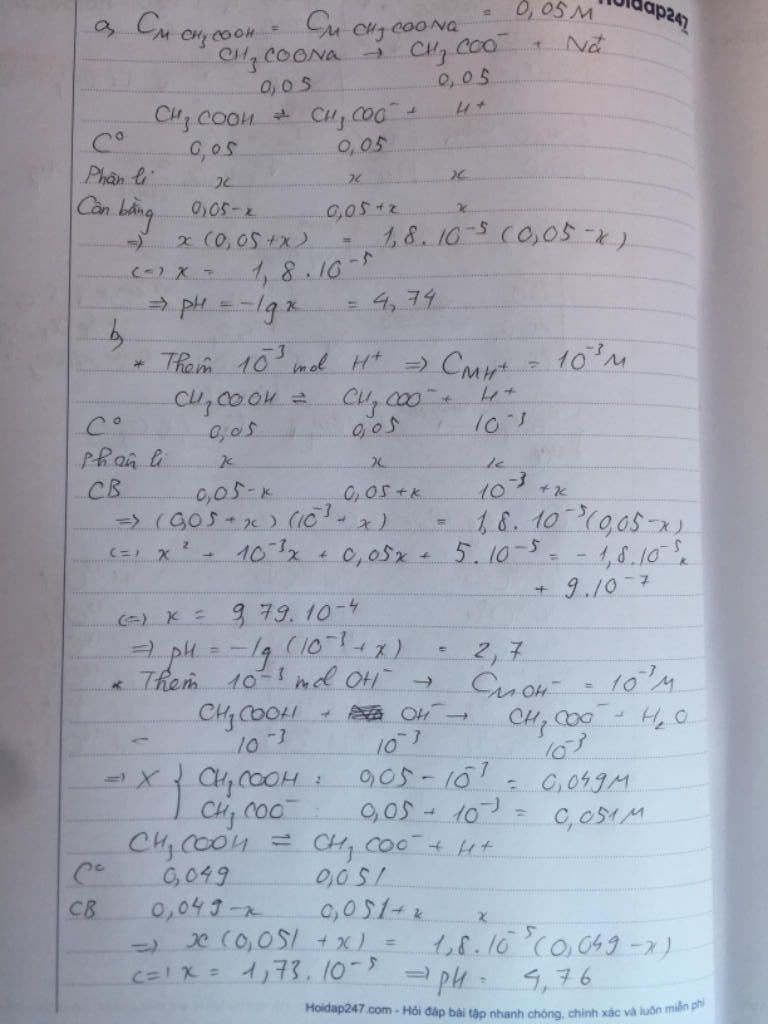 Hoidap247
a, CM CH3COOH = CM CH3COONa = 0,05M
CH3COONa → CH3COO⁻ + Na⁺
0,05 0,05
CH3COOH ⇌ CH3COO⁻ + H⁺
C° 0,05 0,05
Phân li x x x
Cân bằng 0,05-x 0,05+x x
=> x(0,05+x) = 1,8.10⁻⁵(0,05-x)
<=> x = 1,8.10⁻⁵
=> pH = -lg x = 4,74
b,
* Thêm 10⁻³ mol H⁺ => CM H⁺ = 10⁻³M
CH3COOH ⇌ CH3COO⁻ + H⁺
C° 0,05 0,05 10⁻³
Phân li x x x
CB 0,05-x 0,05+x 10⁻³+x
=> (0,05+x)(10⁻³+x) = 1,8.10⁻⁵(0,05-x)
<=> x² + 10⁻³x + 0,05x + 5.10⁻⁵ = -1,8.10⁻⁵x
+ 9.10⁻⁷
<=> x = 9,79.10⁻⁴
=> pH = -lg(10⁻³+x) = 2,7
* Thêm 10⁻³ mol OH⁻ → CM OH⁻ = 10⁻³M
CH3COOH + OH⁻ → CH3COO⁻ + H2O
- 10⁻³ 10⁻³ 10⁻³
=> X { CH3COOH : 0,05-10⁻³ = 0,049M
CH3COO⁻ : 0,05+10⁻³ = 0,051M
CH3COOH ⇌ CH3COO⁻ + H⁺
C° 0,049 0,051
CB 0,049-x 0,051+x x
=> x(0,051+x) = 1,8.10⁻⁵(0,049-x)
<=> x = 1,73.10⁻⁵ => pH = 4,76
Hoidap247.com - Hỏi đáp bài tập nhanh chóng, chính xác và luôn miễn phí